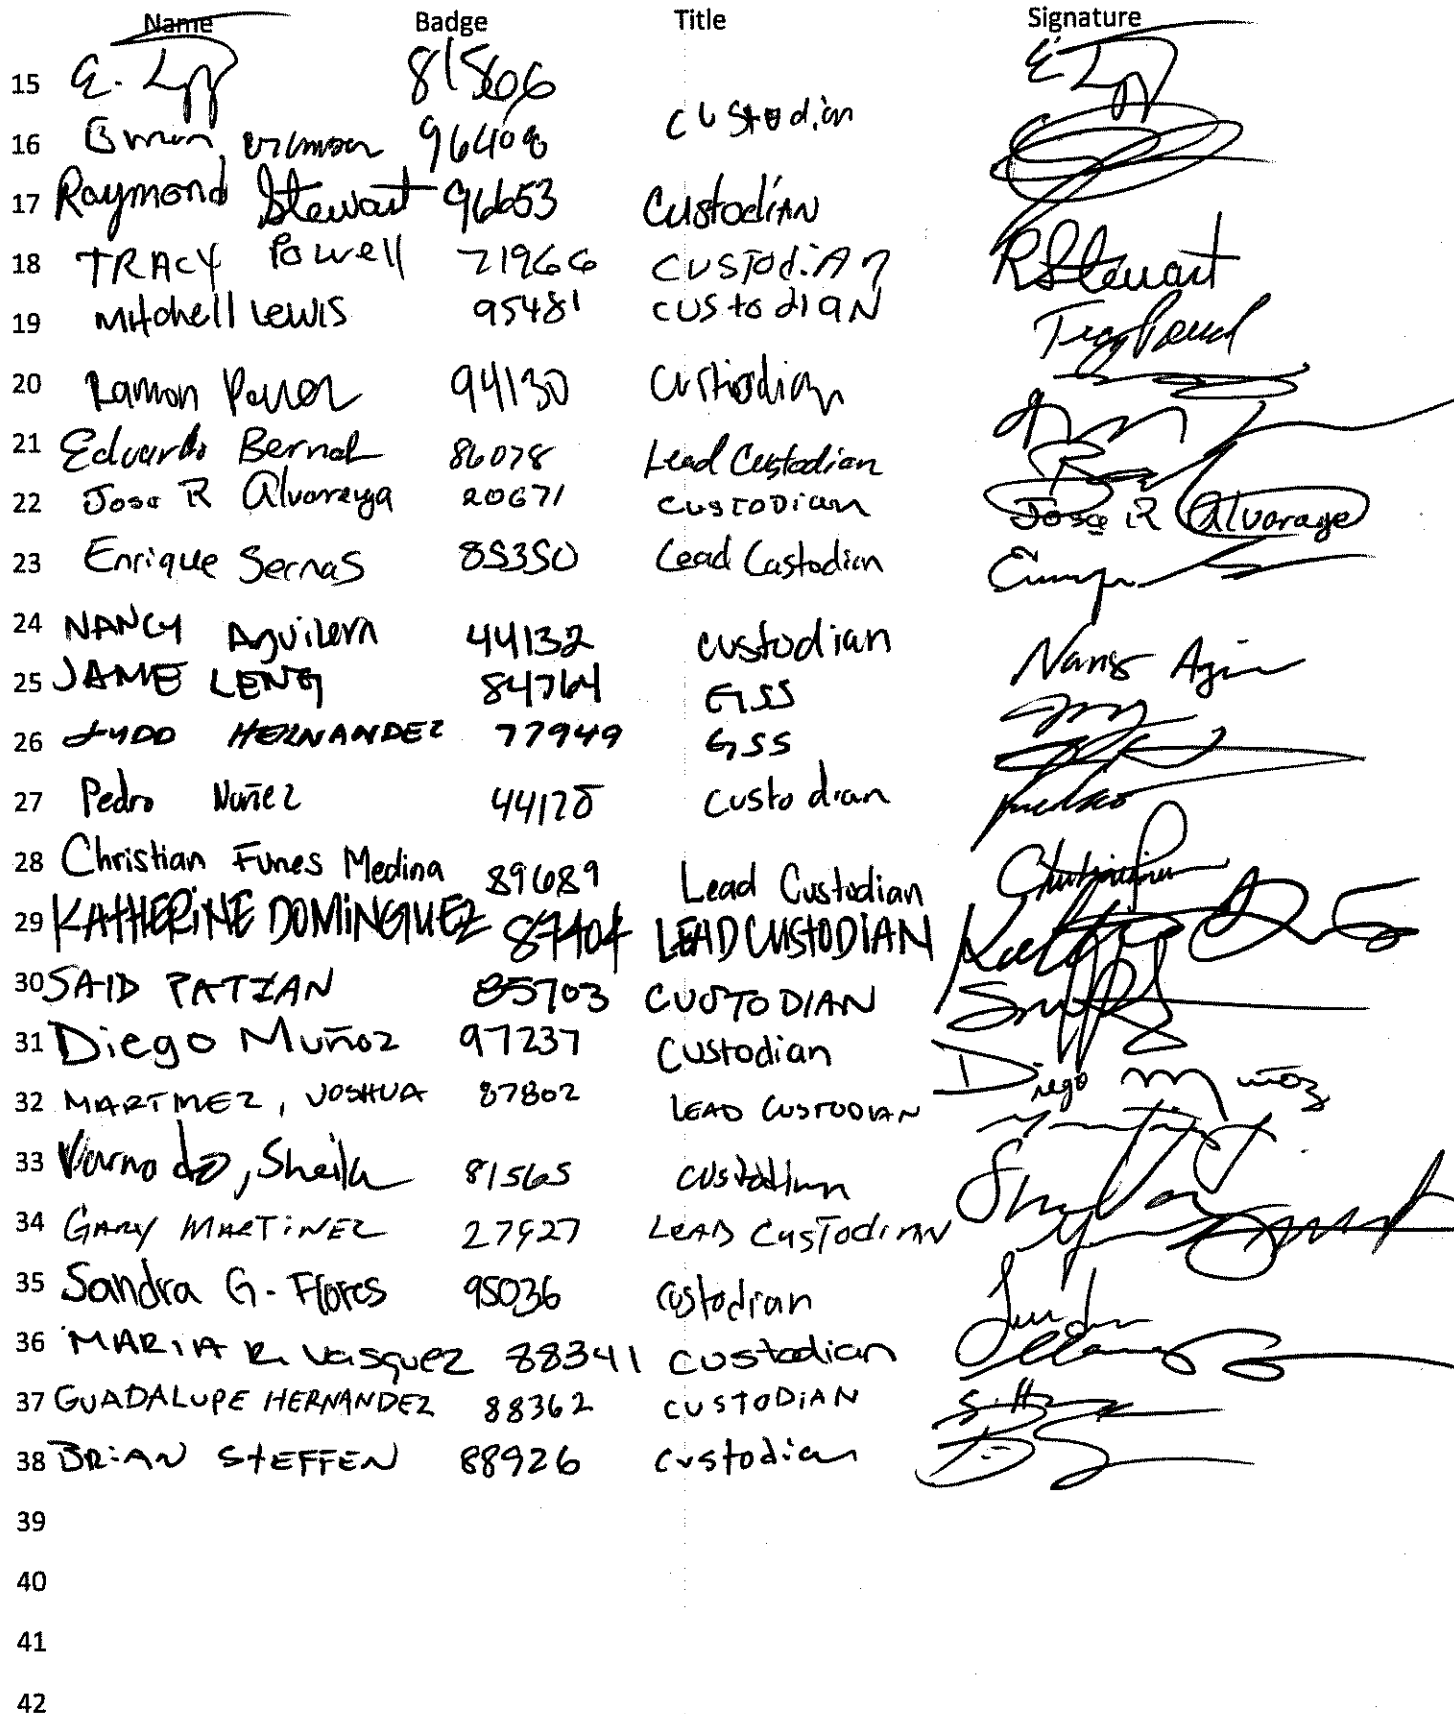 Name Badge Title Signature
15 E. 81566 E.
16 96408 custodian
17 Raymond Stewart 96653 Custodian
18 TRACY Powell 71966 CUSTODiAn R Stewart
19 Mitchell Lewis 95481 custodiaN Tracy Powell
20 Ramon 94130 Custiodian
21 Eduardo Bernal 86078 Lead Custodian
22 Jose R Alvarenga 20671 CUSTODian Jose R Alvarage
23 Enrique Sernas 85350 Lead Castodian
24 NANCY Aguilera 44132 custodian
25 JAME LENG 84764 GSS
26 HERNANDEZ 77949 GSS
27 Pedro Nuñez custodian
28 Christian Funes Medina 89689 Lead Custodian
29 KATHERiNE DOMiNGUEZ LEAD CUSTODIAN
30 SAID PATZAN 85703 CUSTODIAN
31 Diego Muñoz 97237 Custodian Diego muñoz
32 MARTINEZ, JOSHUA 87802 LEAD CUSTODIAN
33 Varnado, Sheila 81565 custodian
34 GARY MARTiNEZ 27927 LEAD CUSTodiAN
35 Sandra G. Flores 95036 custodian
36 MARiA R. Vasquez 88341 custodian
37 GUADALUPE HERNANDEZ 88362 CUSTODiAN
38 BRiAN STEFFEN 88926 custodian
39
40
41
42